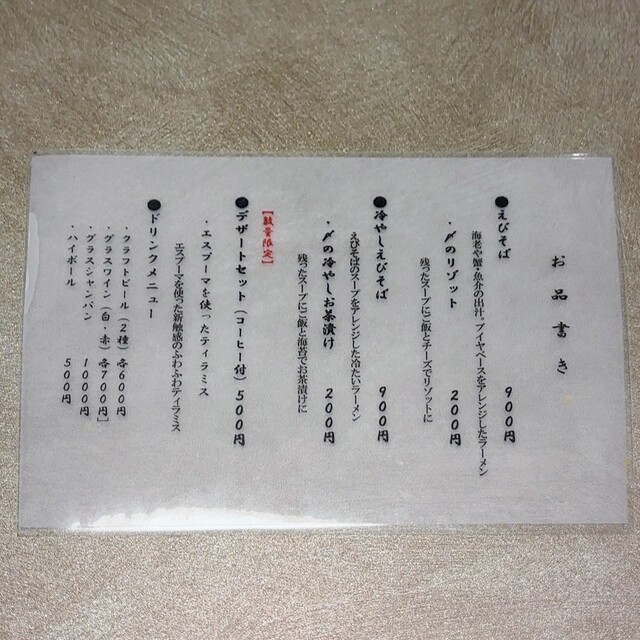 お品書き
●えびそば 900円
海老や蟹・魚介の出汁。ブイヤベースをアレンジしたラーメン
・〆のリゾット 200円
残ったスープにご飯とチーズでリゾットに
●冷やしえびそば 900円
えびそばのスープをアレンジした冷たいラーメン
・〆の冷やしお茶漬け 200円
残ったスープにご飯と海苔でお茶漬けに
【数量限定】
●デザートセット（コーヒー付）500円
・エスプーマを使ったティラミス
エスプーマを使った新触感のふわふわティラミス
●ドリンクメニュー
・クラフトビール（2種）各600円
・グラスワイン（白・赤）各700円]
・グラスシャンパン 1000円
・ハイボール 500円